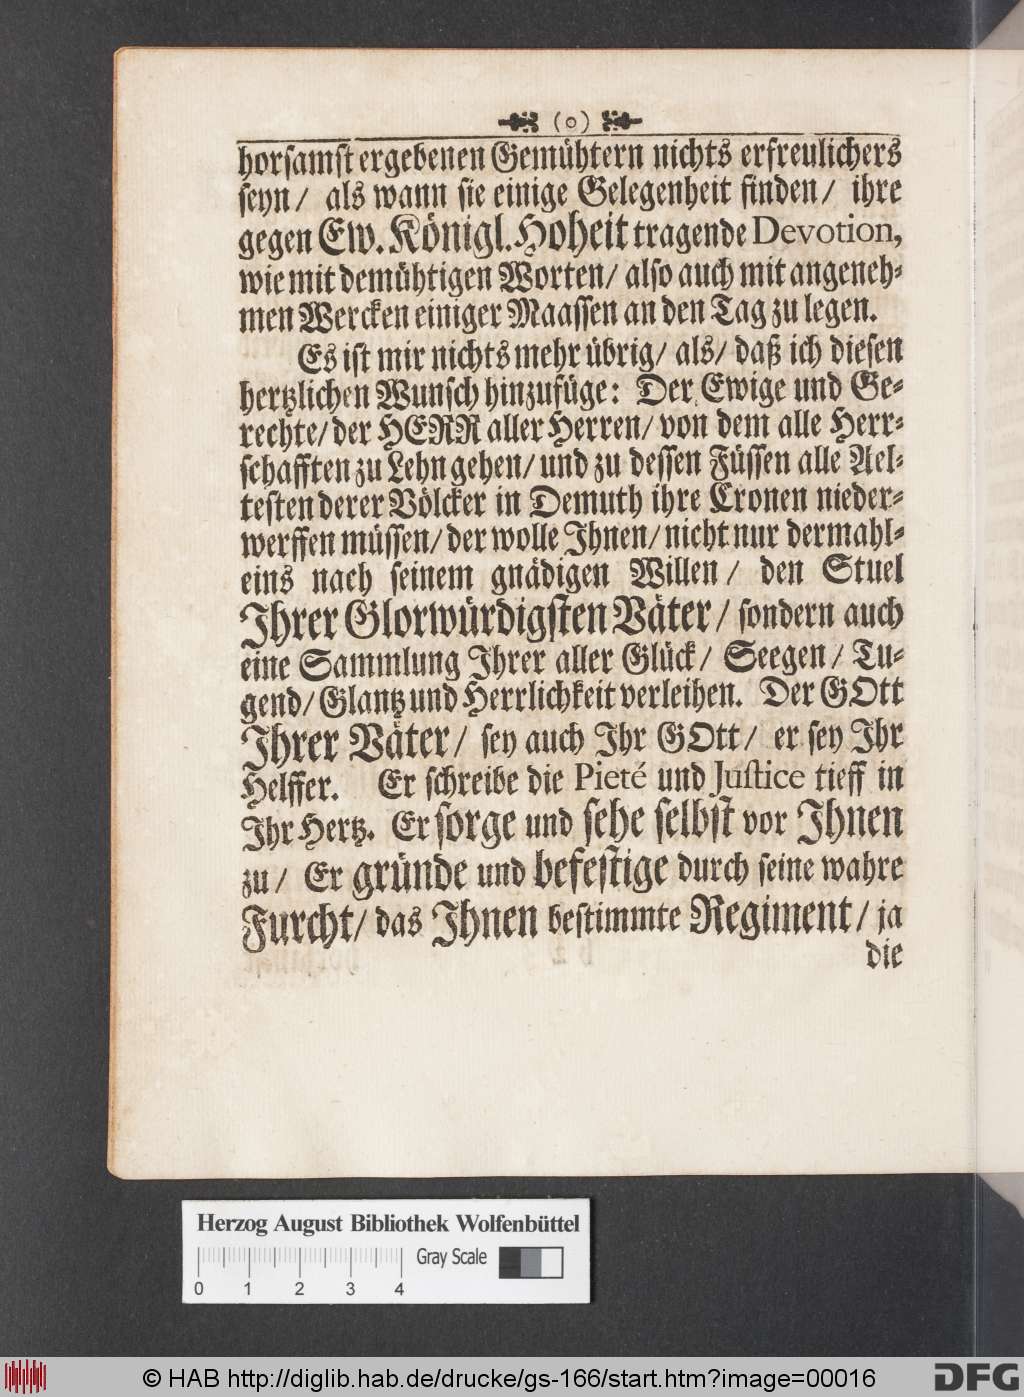 (o)
horsamst ergebenen Gemühtern nichts erfreulichers
seyn/ als wann sie einige Gelegenheit finden/ ihre
gegen Ew. Königl. Hoheit tragende Devotion,
wie mit demühtigen Worten/ also auch mit angeneh-
men Wercken einiger Maassen an den Tag zu legen.
Es ist mir nichts mehr übrig/ als/ daß ich diesen
hertzlichen Wunsch hinzufüge: Der Ewige und Ge-
rechte/ der HERR aller Herren/ von dem alle Herr-
schafften zu Lehn gehen/ und zu dessen Füssen alle Ael-
testen derer Völcker in Demuth ihre Cronen nieder-
werffen müssen/ der wolle Ihnen/ nicht nur dermahl-
eins nach seinem gnädigen Willen/ den Stuel
Ihrer Glorwürdigsten Väter/ sondern auch
eine Sammlung Ihrer aller Glück/ Seegen/ Tu-
gend/ Glantz und Herrlichkeit verleihen. Der GOtt
Ihrer Väter/ sey auch Ihr GOtt/ er sey Ihr
Helffer. Er schreibe die Pieté und Justice tieff in
Ihr Hertz. Er sorge und sehe selbst vor Ihnen
zu/ Er gründe und befestige durch seine wahre
Furcht/ das Ihnen bestimmte Regiment/ ja
die
Herzog August Bibliothek Wolfenbüttel
Gray Scale
0 1 2 3 4
© HAB http://diglib.hab.de/drucke/gs-166/start.htm?image=00016
DFG